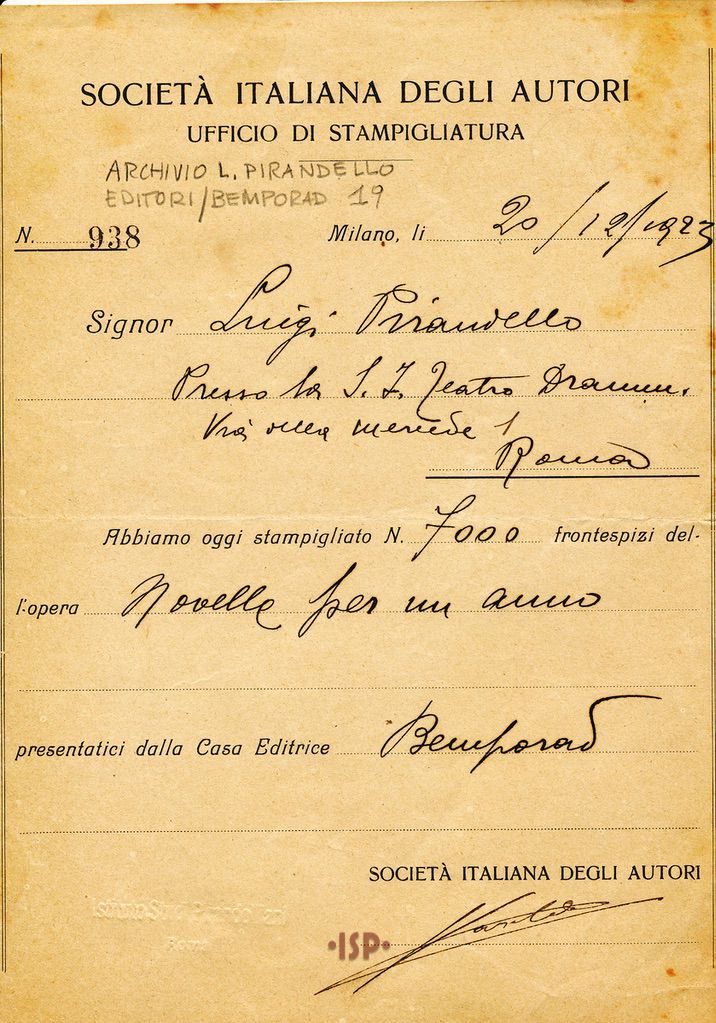 SOCIETÀ ITALIANA DEGLI AUTORI
UFFICIO DI STAMPIGLIATURA
ARCHIVIO L. PIRANDELLO
EDITORI/BEMPORAD 19
N. 938 Milano, li 20/12/1923
Signor Luigi Pirandello
Presso la S. I. Teatro Dramm.
Via della Mercede 1
Roma
Abbiamo oggi stampigliato N. 7000 frontespizi del-
l'opera Novelle per un anno
presentatici dalla Casa Editrice Bemporad
SOCIETÀ ITALIANA DEGLI AUTORI
·ISP·
Roma